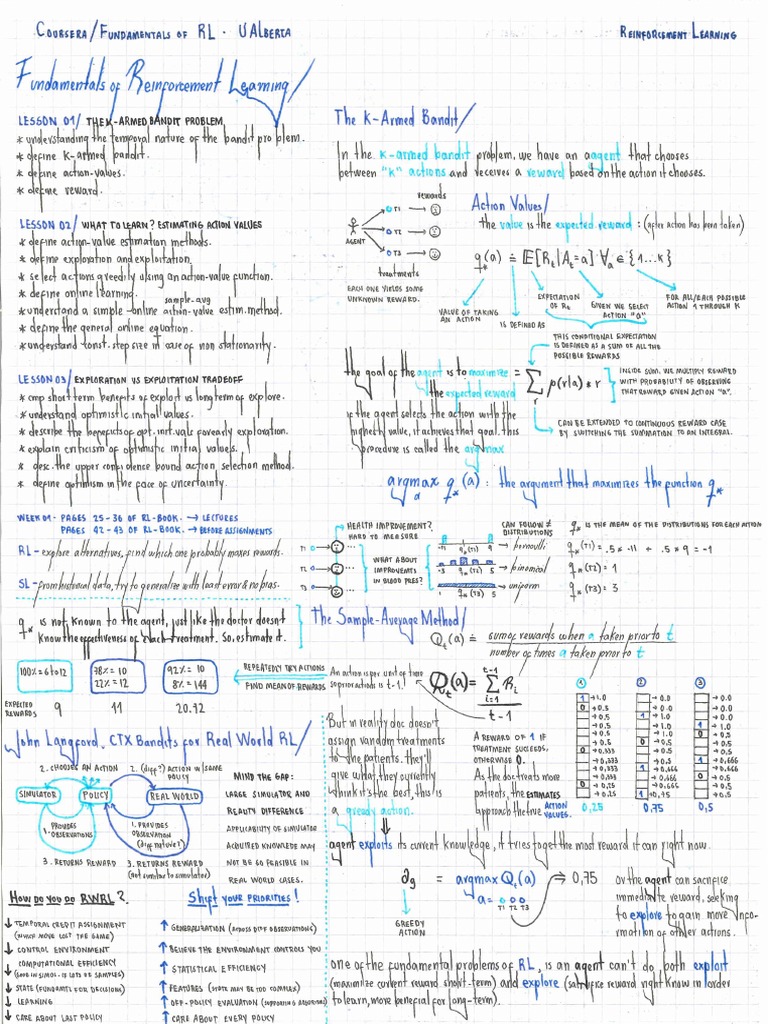 COURSERA/FUNDAMENTALS OF RL - UALBERTA
REINFORCEMENT LEARNING
Fundamentals of Reinforcement Learning/
LESSON 01/ THE K-ARMED BANDIT PROBLEM
* understanding the temporal nature of the bandit problem.
* define k-armed bandit.
* define action-values.
* define reward.
LESSON 02/ WHAT TO LEARN? ESTIMATING ACTION VALUES
* define action-value estimation methods.
* define exploration and exploitation.
* select actions greedily using an action-value function.
* define online learning.
sample-avg
* understand a simple-online action-value estim. method.
* define the general online equation.
* understand const. step size in case of non stationarity.
LESSON 03/ EXPLORATION VS EXPLOITATION TRADEOFF
* cmp short term benefits of exploit vs long term of explore.
* understand optimistic initial values.
* describe the benefits of opt. init. vals for early exploration.
* explain criticism of optimistic initial values.
* desc. the upper confidence bound action selection method.
* define optimism in the face of uncertainty.
WEEK 01 - PAGES 25-36 OF RL-BOOK. → LECTURES
PAGES 42-43 OF RL-BOOK. → BEFORE ASSIGNMENTS
RL - explore alternatives, find which one probably makes rewards.
SL - from historical data, try to generalize with least error & no bias.
q* is not known to the agent, just like the doctor doesn't
know the effectiveness of each treatment. So, estimate it.
100% = 6 to 12
78% = 10
22% = 12
92% = 10
8% = 144
REPEATEDLY TRY ACTIONS
FIND MEAN OF REWARDS
EXPECTED REWARDS
9
11
20.72
The K-Armed Bandit/
In the k-armed bandit problem, we have an agent that chooses
between "k" actions and receives a reward based on the action it chooses.
rewards
T1
T2
T3
AGENT
treatments
EACH ONE YIELDS SOME
UNKNOWN REWARD.
Action Values/
the value is the expected reward : (after action has been taken)
q*(a) ≐ E[Rt|At=a] ∀a ∈ {1...k}
VALUE OF TAKING
AN ACTION
IS DEFINED AS
EXPECTATION
OF Rt
GIVEN WE SELECT
ACTION "a"
FOR ALL/EACH POSSIBLE
ACTION 1 THROUGH K
THIS CONDITIONAL EXPECTATION
IS DEFINED AS A SUM OF ALL THE
POSSIBLE REWARDS
the goal of the agent is to maximize
the expected reward
= Σ p(r|a) * r
r
INSIDE SUM. WE MULTIPLY REWARD
WITH PROBABILITY OF OBSERVING
THAT REWARD GIVEN ACTION "a".
CAN BE EXTENDED TO CONTINUOUS REWARD CASE
BY SWITCHING THE SUMMATION TO AN INTEGRAL.
if the agent selects the action with the
highest value, it achieves that goal. this
procedure is called the argmax
argmax q*(a) : the argument that maximizes the function q*
a
HEALTH IMPROVEMENT?
HARD TO MEASURE
T1
T2
T3
WHAT ABOUT
IMPROVEMENTS
IN BLOOD PRES?
CAN FOLLOW ≠
DISTRIBUTIONS
-11 q*(T1) 9
bernoulli
-3 q*(T2) 5
binomial
1 q*(T3) 5
uniform
q* IS THE MEAN OF THE DISTRIBUTIONS FOR EACH ACTION
q*(T1) = .5 * -11 + .5 * 9 = -1
q*(T2) = 1
q*(T3) = 3
The Sample-Average Method/
Qt(a) ≐ sum of rewards when a taken prior to t
number of times a taken prior to t
An action is per unit of time
so prior actions is t-1.
Qt(a) = Σ Ri
t-1
i=1
t-1
But in reality doc doesn't
assign random treatments
to the patients. they'll
give what, they currently
think it's the best, this is
a greedy action.
A REWARD OF 1 IF
TREATMENT SUCCEEDS,
OTHERWISE 0.
As the doc treats more
patients, the ESTIMATES
approach the true ACTION VALUES.
1
2
3
0,25
0,75
0,5
agent exploits its current knowledge, it tries to get the most reward it can right now.
ag = argmax Qt(a) → 0,75
a =
T1 T2 T3
GREEDY
ACTION
Or the agent can sacrifice
immediate reward, seeking
to explore to gain more info-
rmation of other actions.
one of the fundamental problems of RL, is an agent can't do both exploit
(maximize current reward short-term) and explore (sacrifice reward right know in order
to learn, more beneficial for long-term).
John Langford. CTX Bandits for Real World RL/
2. CHOOSES AN ACTION
2. (diff?) ACTION W/SAME
POLICY
SIMULATOR
POLICY
REAL WORLD
1. PROVIDES
OBSERVATIONS
1. PROVIDES
OBSERVATION
(diff nature?)
3. RETURNS REWARD
3. RETURNS REWARD
(not similar to simulator)
MIND THE GAP:
LARGE SIMULATOR AND
REALITY DIFFERENCE
APPLICABILITY OF SIMULATOR
ACQUIRED KNOWLEDGE MAY
NOT BE SO FEASIBLE IN
REAL WORLD CASES.
HOW DO YOU DO RWRL?
↓ TEMPORAL CREDIT ASSIGNMENT
(WHICH MOVE LOST THE GAME)
↓ CONTROL ENVIRONMENT
↓ COMPUTATIONAL EFFICIENCY
↓ STATE (FUNDMNTS FOR DECISIONS)
↓ LEARNING
↓ CARE ABOUT LAST POLICY
Shift YOUR PRIORITIES!
↑ GENERALIZATION (ACROSS DIFF OBSERVATIONS)
↑ BELIEVE THE ENVIRONMENT CONTROLS YOU
↑ STATISTICAL EFFICIENCY
↑ FEATURES (STATE MAY BE TOO COMPLEX)
↑ OFF-POLICY EVALUATION
↑ CARE ABOUT EVERY POLICY